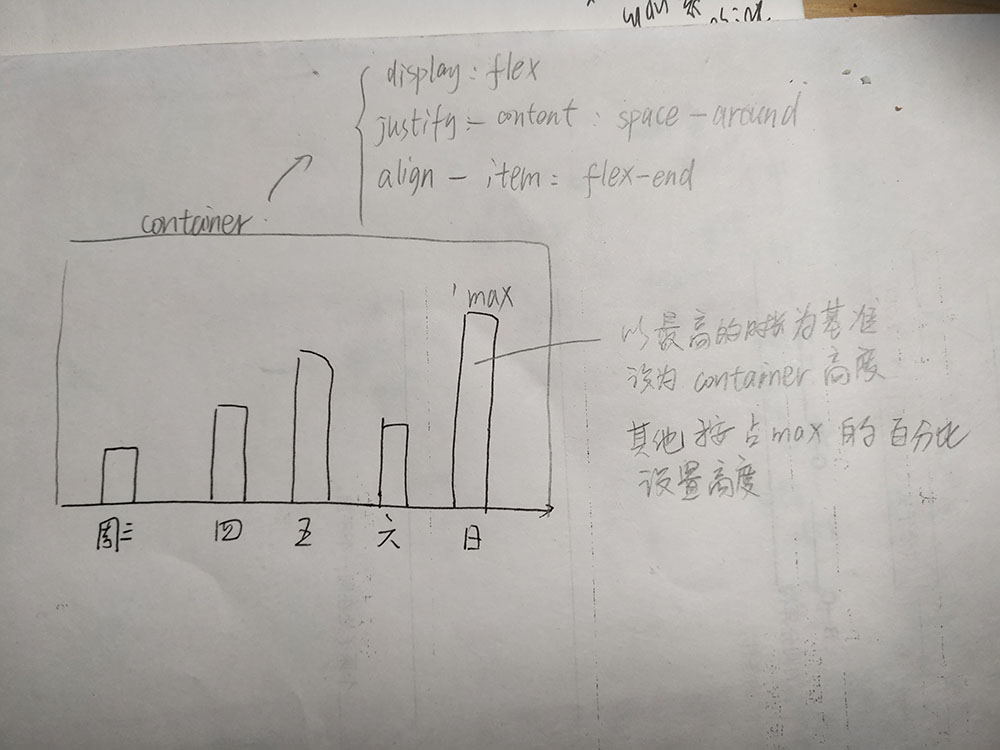 display: flex
justify-content: space-around
align-item: flex-end
container
max
以最高的时长为基准
设为 container 高度
其他按占max的百分比
设置高度
周三 四 五 六 日